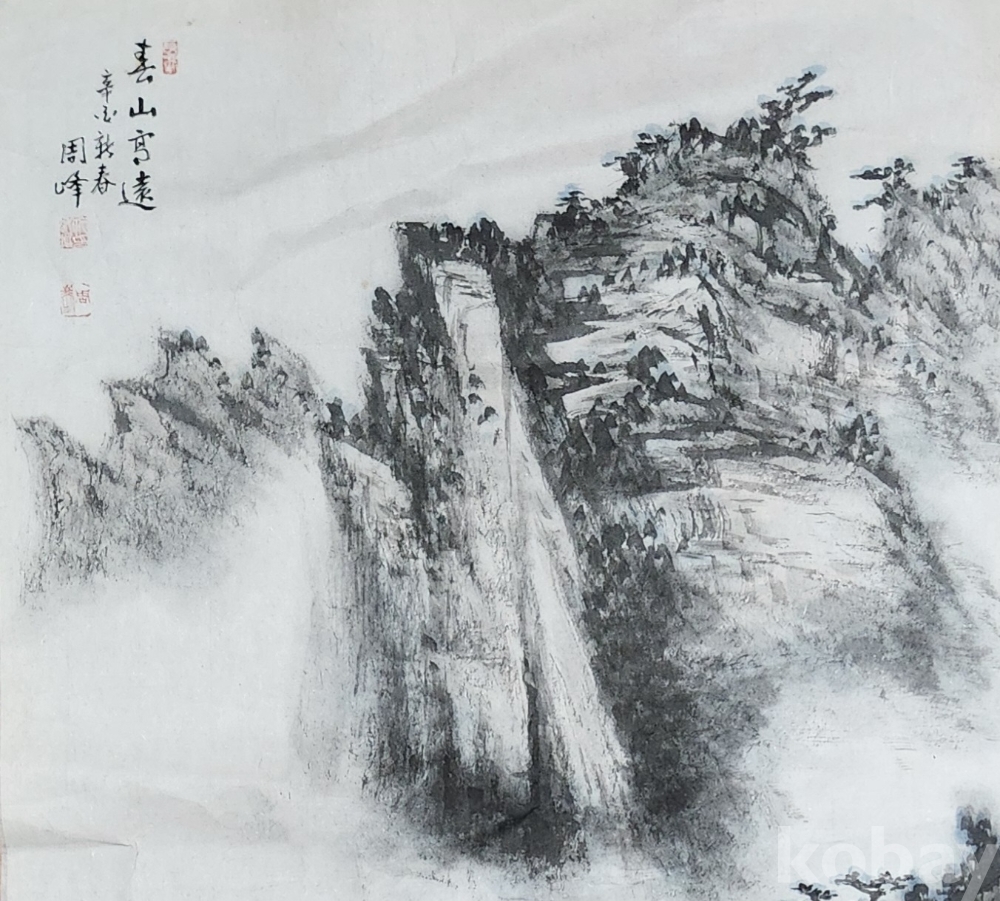 春山高遠
辛酉新春
周峰
kobay